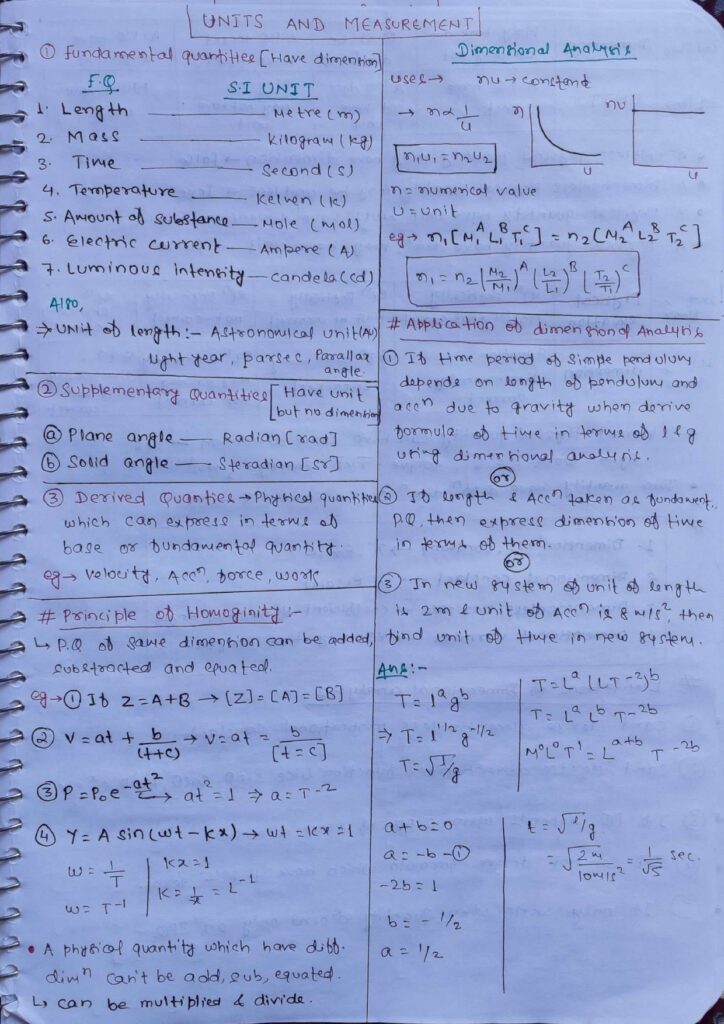 UNITS AND MEASUREMENT
① Fundamental quantities [Have dimention]
F.Q S.I UNIT
1. Length — Metre (m)
2. Mass — Kilogram (kg)
3. Time — Second (s)
4. Temperature — Kelven (k)
5. Amount of substance — Mole (mol)
6. Electric current — Ampere (A)
7. Luminous intensity — candela (cd)
Also,
⇒ UNIT of length:- Astronomical unit (AU)
light year, parsec, Parallax
angle.
② Supplementary Quantities [Have unit
but no dimention]
ⓐ Plane angle — Radian [rad]
ⓑ Solid angle — Steradian [Sr]
③ Derived Quanties → Physical quantities
which can express in terms of
base or fundamental quantity.
eg → velocity, Accⁿ, force, work
# Principle of Homoginity :-
↳ P.Q of same dimension can be added,
substracted and equated.
eg → ① If Z = A + B → [Z] = [A] = [B]
② V = at + b/(t+c) → V = at = b/[t=c]
③ P = P₀e^-at² → at² = 1 ⇒ a = T⁻²
④ Y = A sin(wt - kx) → wt = kx = 1
w = 1/T
w = T⁻¹
kx = 1
k = 1/x = L⁻¹
• A physical quantity which have diff.
dimⁿ can't be add, sub, equated.
↳ can be multiplied & divide.
Dimensional Analysis
uses → nu → constend
→ n ∝ 1/u
n u
nu u
n₁u₁ = n₂u₂
n = numerical value
U = unit
eg → n₁[M₁ᴬ L₁ᴮ T₁ᶜ] = n₂[M₂ᴬ L₂ᴮ T₂ᶜ]
n₁ = n₂ [M₂/M₁]ᴬ [L₂/L₁]ᴮ [T₂/T₁]ᶜ
# Application of dimensional Analysis
① If time period of Simple pendulum
depends on length of pendulum and
accⁿ due to gravity when derive
formula of time in terms of l & g
using dimentional analysis.
or
② If length & Accⁿ taken as fundament.
P.Q, then express dimention of time
in terms of them.
or
③ In new system of unit of length
is 2m & unit of Accⁿ is 8 m/s², then
find unit of time in new system.
Ans:-
T = lᵃgᵇ
⇒ T = l^1/2 g^-1/2
T = √l/g
T = Lᵃ (LT⁻²)ᵇ
T = Lᵃ Lᵇ T⁻²ᵇ
M⁰L⁰T¹ = Lᵃ⁺ᵇ T⁻²ᵇ
a + b = 0
a = -b - ①
-2b = 1
b = - 1/2
a = 1/2
t = √l/g
= √2m/10m/s² = 1/√5 sec.